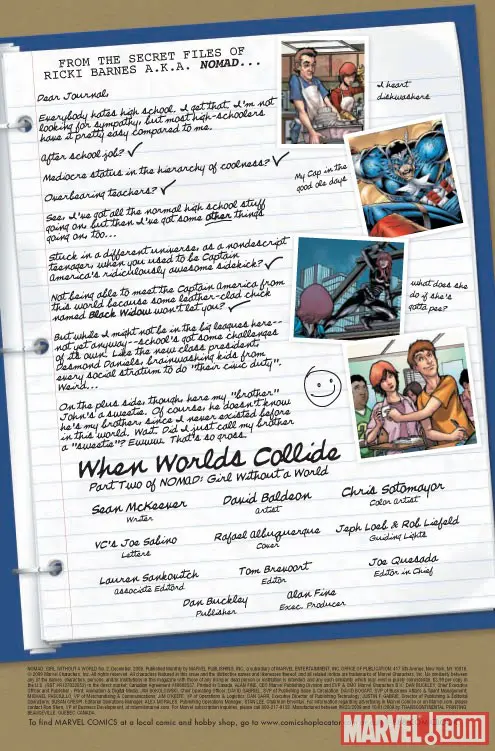 FROM THE SECRET FILES OF
RICKI BARNES A.K.A. NOMAD...
Dear Journal,
Everybody hates high school. I get that. I'm not
looking for sympathy, but most high-schoolers
have it pretty easy compared to me.
After school job? ✓
Mediocre status in the hierarchy of coolness? ✓
Overbearing teachers? ✓
See, I've got all the normal high school stuff
going on, but then I've got some other things
going on, too...
Stuck in a different universe, as a nondescript
teenager, when you used to be Captain
America's ridiculously awesome sidekick? ✓
Not being able to meet the Captain America from
this world because some leather-clad chick
named Black Widow won't let you? ✓
But while I might not be in the big leagues here--
not yet anyway--school's got some challenges
of its own. Like the new class president,
Desmond Daniels, brainwashing kids from
every social stratum to do "their civic duty".
Weird...
On the plus side, though, here my "brother"
John's a sweetie. Of course, he doesn't know
he's my brother, since I never existed before
in this world. Wait. Did I just call my brother
a "sweetie"? Ewwww. That's so gross.
I heart
dishwashers
My Cap in the
good ole days
what does she
do if she's
gotta pee?
When Worlds Collide
Part Two of NOMAD: Girl Without a World
Sean McKeever
Writer
David Baldeon
Artist
Chris Sotomayor
Color Artist
VC's Joe Sabino
Letters
Rafael Albuquerque
Cover
Jeph Loeb & Rob Liefeld
Guiding Lights
Lauren Sankovitch
Associate Editord
Tom Brevoort
Editor
Joe Quesada
Editor in Chief
Dan Buckley
Publisher
Alan Fine
Exec. Producer
To find MARVEL COMICS at a local comic and hobby shop, go to www.comicshoplocator
MARVEL.COM